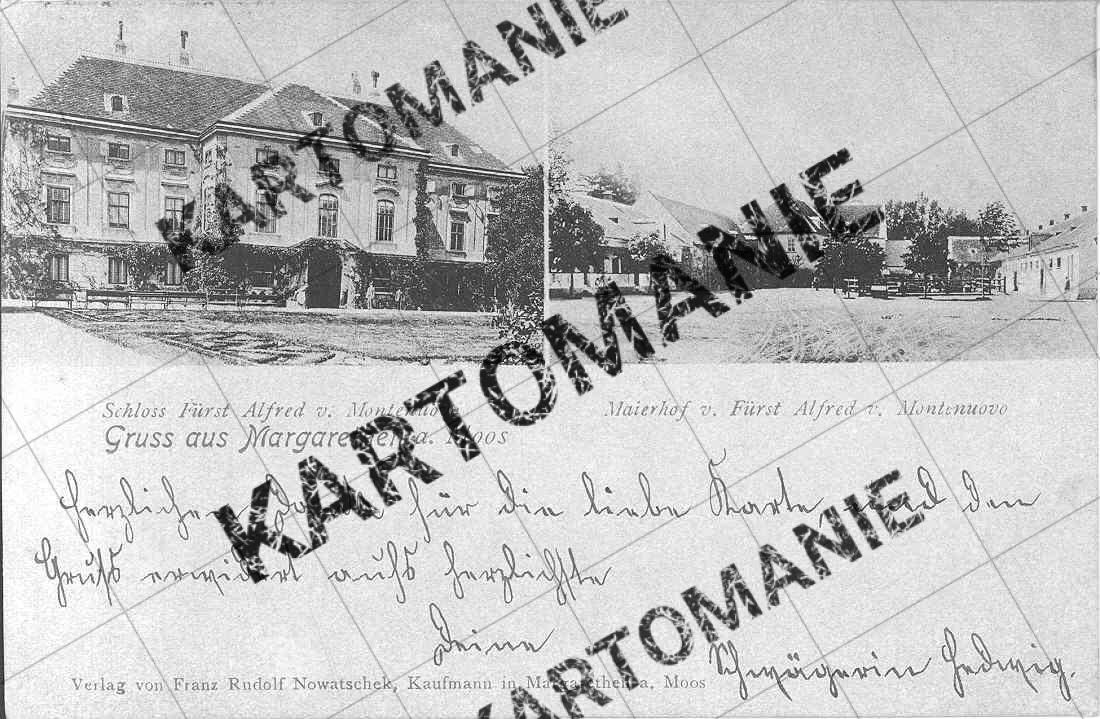 KARTOMANIE
KARTOMANIE
KARTOMANIE
Schloss Fürst Alfred v. Montenuovo
Maierhof v. Fürst Alfred v. Montenuovo
Gruss aus Margarethen a. Moos
Herzlichen Dank für die liebe Karte und den
Gruß erwidert aufs herzlichste
Deine
Schwägerin Hedwig.
Verlag von Franz Rudolf Nowatschek, Kaufmann in Margarethen a. Moos